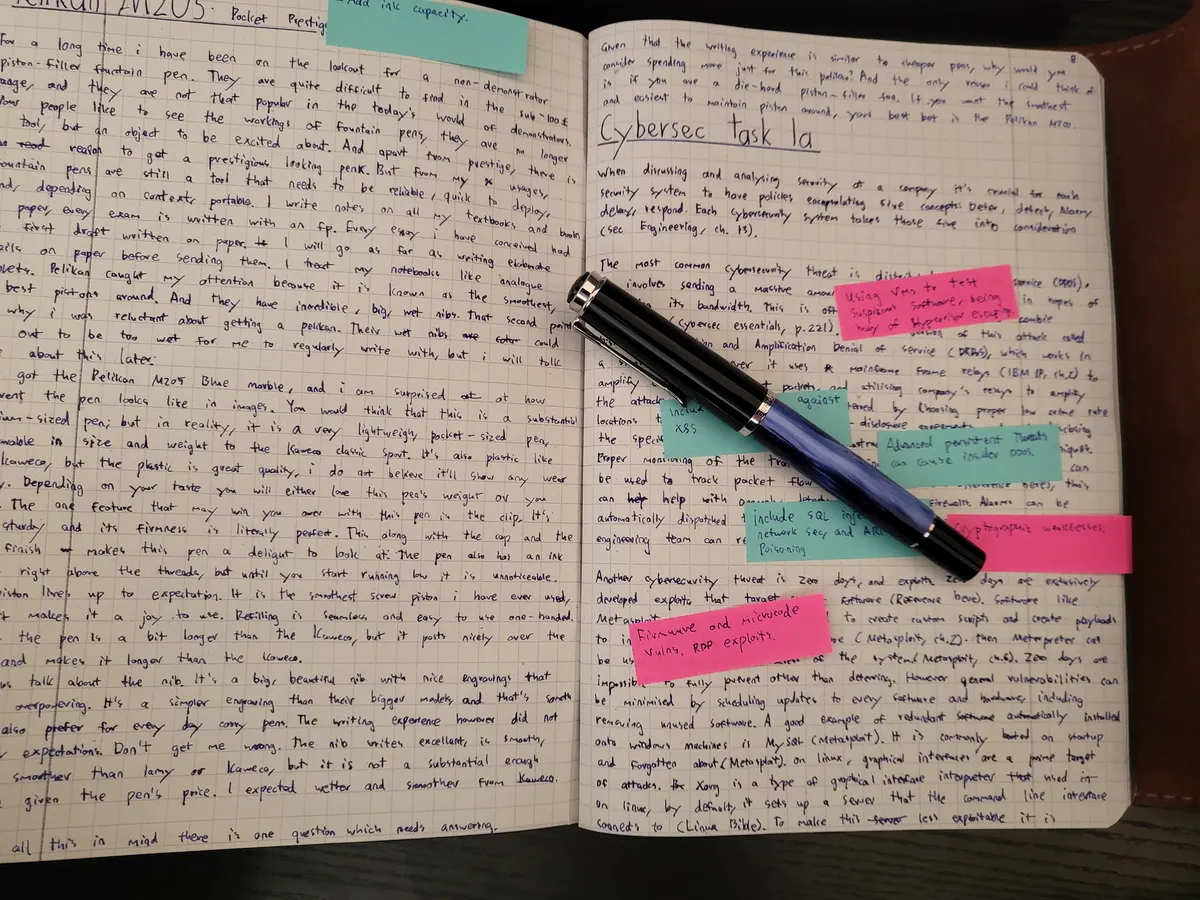 Pelikan M205: Pocket Prestige
Add ink capacity.
For a long time i have been on the lookout for a non-demonstrator
piston-filler fountain pen. They are quite difficult to find in the sub-100£
range, and they are not that popular in the today's world of demonstrators.
people like to see the workings of fountain pens, they are no longer
tool, but an object to be excited about. And apart from prestige, there is
reason to get a prestigious looking pen. But from my usages,
fountain pens are still a tool that needs to be reliable, quick to deploy,
and, depending on context, portable. I write notes on all my textbooks and books
paper, every exam is written with an fp. Every essay i have conceived had
first draft written on paper. I will go as far as writing elaborate
on paper before sending them. I treat my notebooks like analogue
Pelikan caught my attention because it is known as the smoothest,
best pistons around. And they have incredible, big, wet nibs. That second point
why i was reluctant about getting a pelikan. Their wet nibs could
out to be too wet for me to regularly write with, but i will talk
about this later.
got the Pelikan M205 Blue marble, and i am surprised at how
the pen looks like in images. You would think that this is a substantial
-sized pen, but in reality, it is a very lightweigh, pocket-sized pen,
in size and weight to the Kaweco classic Sport. It's also plastic like
Kaweco, but the plastic is great quality, i do not believe it'll show any wear
Depending on your taste you will either love this pen's weight or you
The one feature that may win you over with this pen is the clip. It's
sturdy and its firmness is literally perfect. This along with the cap and the
finish makes this pen a delight to look at. The pen also has an ink
right above the threads, but until you start running low it is unnoticeable.
piston lives up to expectation. It is the smoothest screw piston i have ever used,
it makes it a joy to use. Refilling is seamless and easy to use one-handed.
the pen is a bit longer than the Kaweco, but it posts nicely over the
and makes it longer than the Kaweco.
talk about the nib. It's a big, beautiful nib with nice engravings that
overpowering. It's a simpler engraving than their bigger models, and that's
also prefer for every day carry pens. The writing experience however did not
expectations. Don't get me wrong. The nib writes excellent, is smooth,
smoother than lamy or Kaweco, but it is not a substantial enough
given the pen's price. I expected wetter and smoother from Kaweco.
all this in mind there is one question which needs answering.
8
Given that the writing experience is similar to cheaper pens, why would you
consider spending more just for this pelikan? And the only reason i could think of
is if you are a die-hard piston-filler fan. If you want the smoothest
and easiest to maintain piston around, your best bet is the Pelikan M200.
Cybersec task 1a
When discussing and analysing security of a company it's crucial for each
security system to have policies encapsulating five concepts: Deter, detect, Alarm,
delay, respond. Each cybersecurity system takes those five into consideration
(sec Engineering, ch. 13).
The most common cybersecurity threat is service (DDOS),
involves sending a massive in hopes of
its bandwidth. This is zombie
(Cybersec essentials, p.221). version of this attack called
and Amplification Denial of service (DRDoS), which works in
it uses mainframe relays (IBM IP, ch.2) to
amplify packets, and utilising company's relays to amplify
the attack by Choosing proper low crime rate
locations disclosure agreements
the
Proper monitoring of the can
be used to track packet flow this
can help with Firewalls. Alarms can be
automatically dispatched
engineering team can
Using VMs to test
suspicious software, being
wary of Hypervisor escaping.
include against
XSS
Advanced persistent Threats
can cause insider DDOS.
include SQL
network sec, and
Poisoning
Cryptographic weaknesses.
Another cybersecurity threat is Zero days, and exploits. Zero days are exclusively
developed exploits that target software (Reference here). Software like
Metasploit to create custom scripts and create payloads
to (Metasploit, ch.2). then Meterpreter can
be of the system (Metasploit, ch.6). Zero days are
impossible to fully prevent other than deterring. However general vulnerabilities can
be minimised by scheduling updates to every software and hardware, including
removing unused software. A good example of redundant software automatically installed
onto windows machines is MySQL (Metasploit). It is commonly on startup
and forgotten about (Metasploit). On linux, graphical interfaces are a prime target
of attacks. Xorg is a type of graphical interface interpreter used in
on linux, by default it sets up a server that the command line interface
connects to (Linux Bible). To make this less exploitable it is
Firmware and microcode
vulns, RDP exploits.